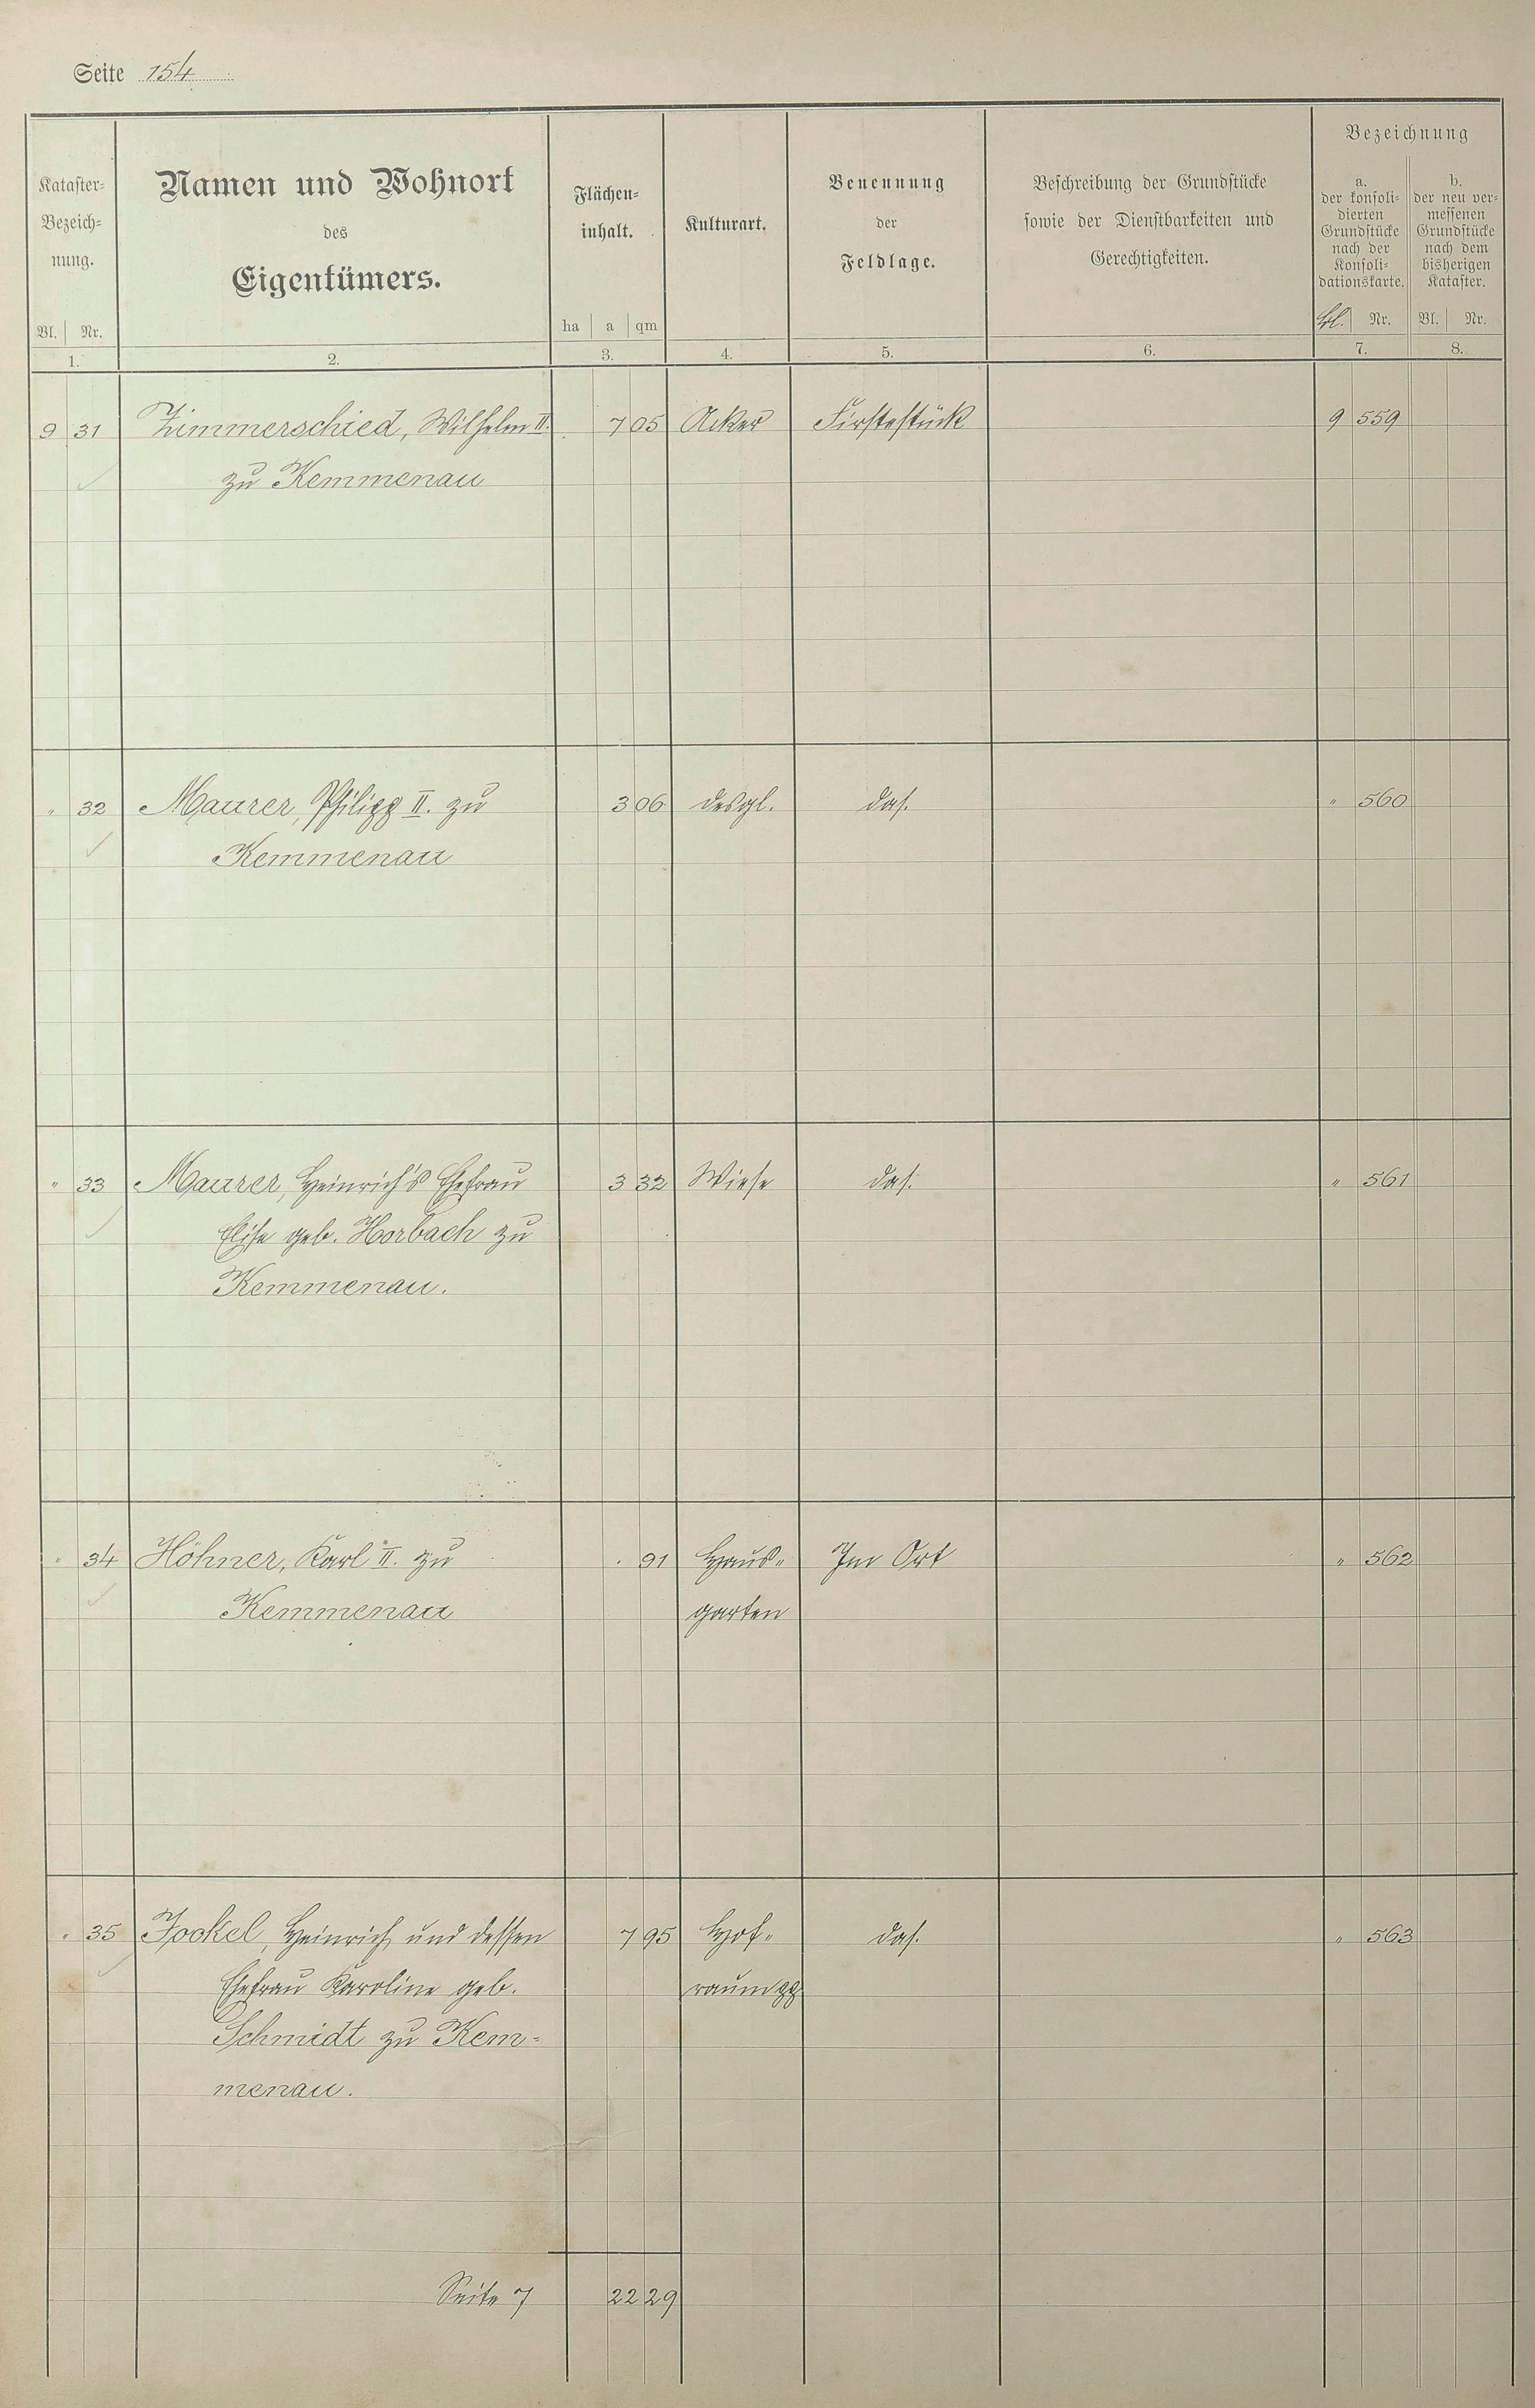 Seite 154
Kataster-
Bezeich-
nung.
Bl. Nr.
1.
Namen und Wohnort
des
Eigentümers.
2.
Flächen-
inhalt.
ha a qm
3.
Kulturart.
4.
Benennung
der
Feldlage.
5.
Beschreibung der Grundstücke
sowie der Dienstbarkeiten und
Gerechtigkeiten.
6.
Bezeichnung
a.
der konsoli-
dierten
Grundstücke
nach der
Konsoli-
dationskarte.
Bl. Nr.
7.
b.
der neu ver-
messenen
Grundstücke
nach dem
bisherigen
Kataster.
Bl. Nr.
8.
9 31 Zimmerschied, Wilhelm II. 7 05 Acker Firstestück 9 559
zu Kemmenau
" 32 Maurer, Philipp II. zu 3 06 desgl. das. " 560
Kemmenau
" 33 Maurer, Heinrich's Ehefrau 3 32 Wiese das. " 561
Elise geb. Horbach zu
Kemmenau.
" 34 Höhner, Karl II. zu . 91 Haus- Im Ort " 562
Kemmenau garten
" 35 Jockel, Heinrich und dessen 7 95 Hof- das. " 563
Ehefrau Karoline geb. raum pp
Schmidt zu Kem-
menau.
Seite 7 22 29